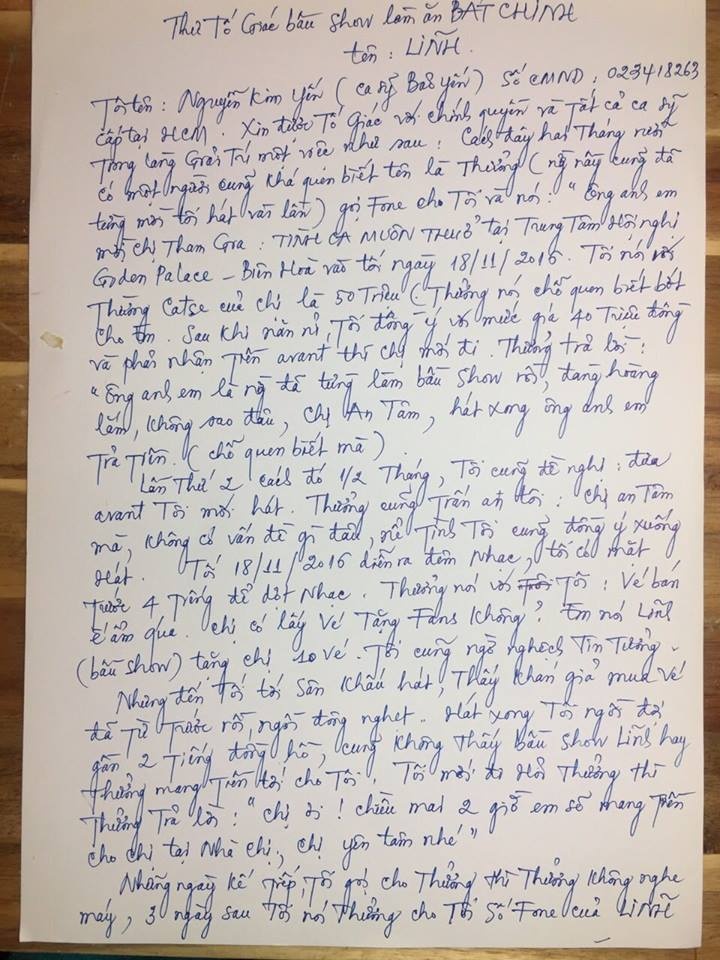 Thư Tố Giác bầu Show làm ăn BẤT CHÍNH
tên : LINH.
Tôi tên : Nguyễn Kim Yến ( ca sỹ Bảo Yến ) Số CMND : 023418263
cấp tại HCM . Xin được Tố Giác với chính quyền và Tất cả ca sỹ
Trong làng Giải Trí một việc như sau : Cách đây hai Tháng rưỡi
có một người cũng khá quen biết tên là Thưởng ( ng này cũng đã
từng mời tôi hát vài lần ) gọi Fone cho Tôi và nói : " Ông anh em
mời chị Tham Gia : TÌNH CA MUÔN THUỞ tại Trung Tâm Hội nghị
Goden Palace - Biên Hoà vào tối ngày 18/11/2016 . Tôi nói với
Thưởng Catse của chị là 50 Triệu ( Thưởng nói chỗ quen biết bớt
cho Em . Sau khi năn nỉ , Tôi đồng ý với mức giá 40 Triệu đồng
và phải nhận Tiền avant thì chị mới đi . Thưởng trả lời :
" Ông anh em là ng đã từng làm bầu Show rồi , đàng hoàng
lắm , không sao đâu , chị An Tâm , hát xong ông anh em
Trả Tiền . ( chỗ quen biết mà ) .
Lần Thứ 2 cách đó 1/2 Tháng , Tôi cũng đề nghị : đưa
avant Tôi mới hát . Thưởng cũng Trấn an tôi : chị an Tâm
mà , không có vấn đề gì đâu , nể Tình Tôi cũng đồng ý xuống
Hát . Tối 18/11/2016 diễn ra đêm Nhạc , tôi có mặt
Trước 4 Tiếng để dợt Nhạc . Thưởng nói với Tôi : Vé bán
ế ẩm qúa . chị có lấy Vé Tặng Fans Không ? Em nói Linh
( bầu show ) tặng chị 10 Vé . Tôi cũng ngờ nghệch Tin Tưởng .
Nhưng đến Tối tới Sân Khấu hát , Thấy Khán giả mua Vé
đã Từ Trước rồi , ngồi đông nghẹt .. Hát xong Tôi ngồi đợi
gần 2 Tiếng đồng hồ , cũng không Thấy bầu Show Linh hay
Thưởng mang Tiền tới cho Tôi . Tôi mới đi Hỏi Thưởng thì
Thưởng Trả lời : " Chị ơi ! chiều mai 2 giờ em sẽ mang Tiền
cho chị tại Nhà chị , chị yên tâm nhé "
Những ngày kế Tiếp , Tôi gọi cho Thưởng thì Thưởng Không nghe
máy , 3 ngày sau Tôi nói Thưởng cho Tôi Số Fone của LINH